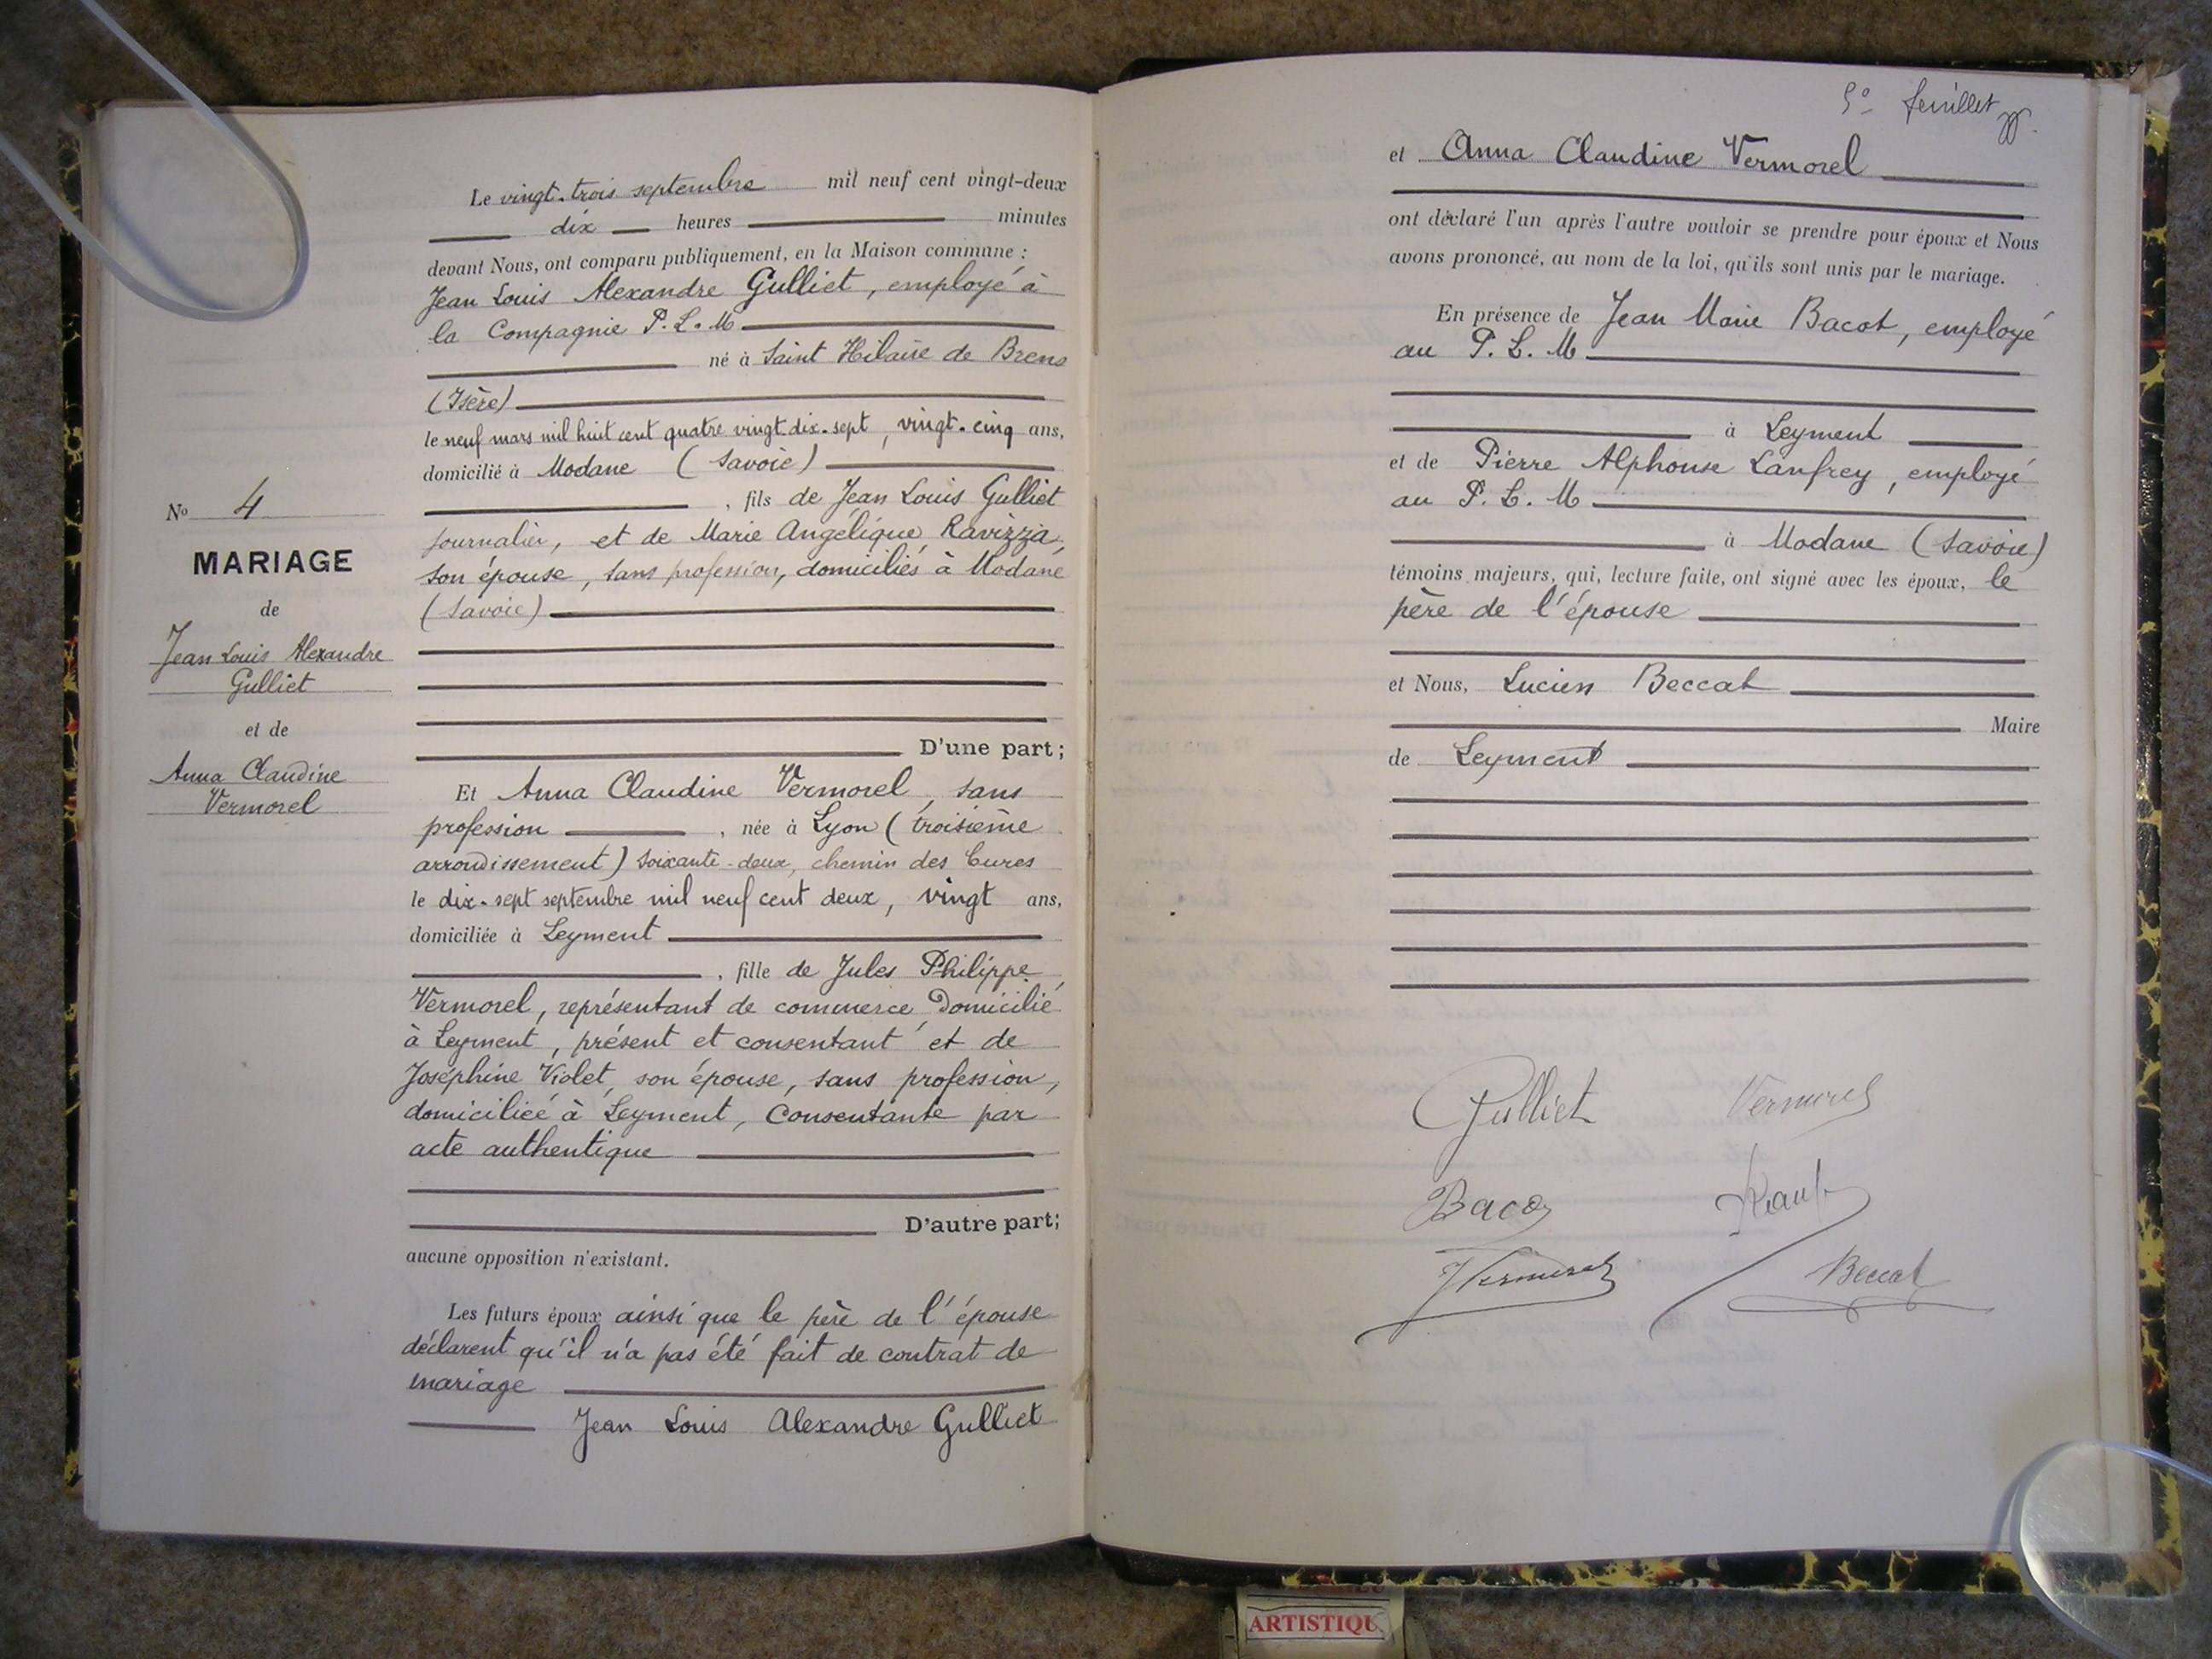 Le vingt-trois septembre mil neuf cent vingt-deux
dix heures minutes
devant Nous, ont comparu publiquement, en la Maison commune :
Jean Louis Alexandre Gulliet, employé à
la Compagnie P.L.M
né à Saint Hilaire de Brens
(Isère)
le neuf mars mil huit cent quatre vingt dix-sept, vingt-cinq ans,
domicilié à Modane (Savoie)
, fils de Jean Louis Gulliet
journalier, et de Marie Angélique Ravizza,
son épouse, sans profession, domiciliés à Modane
(Savoie)
D'une part;
No 4
MARIAGE
de
Jean Louis Alexandre
Gulliet
et de
Anna Claudine
Vermorel
Et Anna Claudine Vermorel, sans
profession , née à Lyon (troisième
arrondissement) soixante-deux, chemin des Cures
le dix-sept septembre mil neuf cent deux, vingt ans,
domiciliée à Leyment
, fille de Jules Philippe
Vermorel, représentant de commerce Domicilié
à Leyment, présent et consentant et de
Joséphine Violet, son épouse, sans profession,
domiciliée à Leyment, Consentante par
acte authentique
D'autre part;
aucune opposition n'existant.
Les futurs époux ainsi que le père de l'épouse
déclarent qu'il n'a pas été fait de contrat de
mariage
Jean Louis Alexandre Gulliet
5e feuillet
et Anna Claudine Vermorel
ont déclaré l'un après l'autre vouloir se prendre pour époux et Nous
avons prononcé, au nom de la loi, qu'ils sont unis par le mariage.
En présence de Jean Marie Bacot, employé
au P.L.M
à Leyment
et de Pierre Alphonse Lanfrey, employé
au P.L.M
à Modane (Savoie)
témoins majeurs, qui, lecture faite, ont signé avec les époux, le
père de l'épouse
et Nous, Lucien Beccat
Maire
de Leyment
Gulliet Vermorel
Bacot
Vermorel Beccat
ARTISTIQU